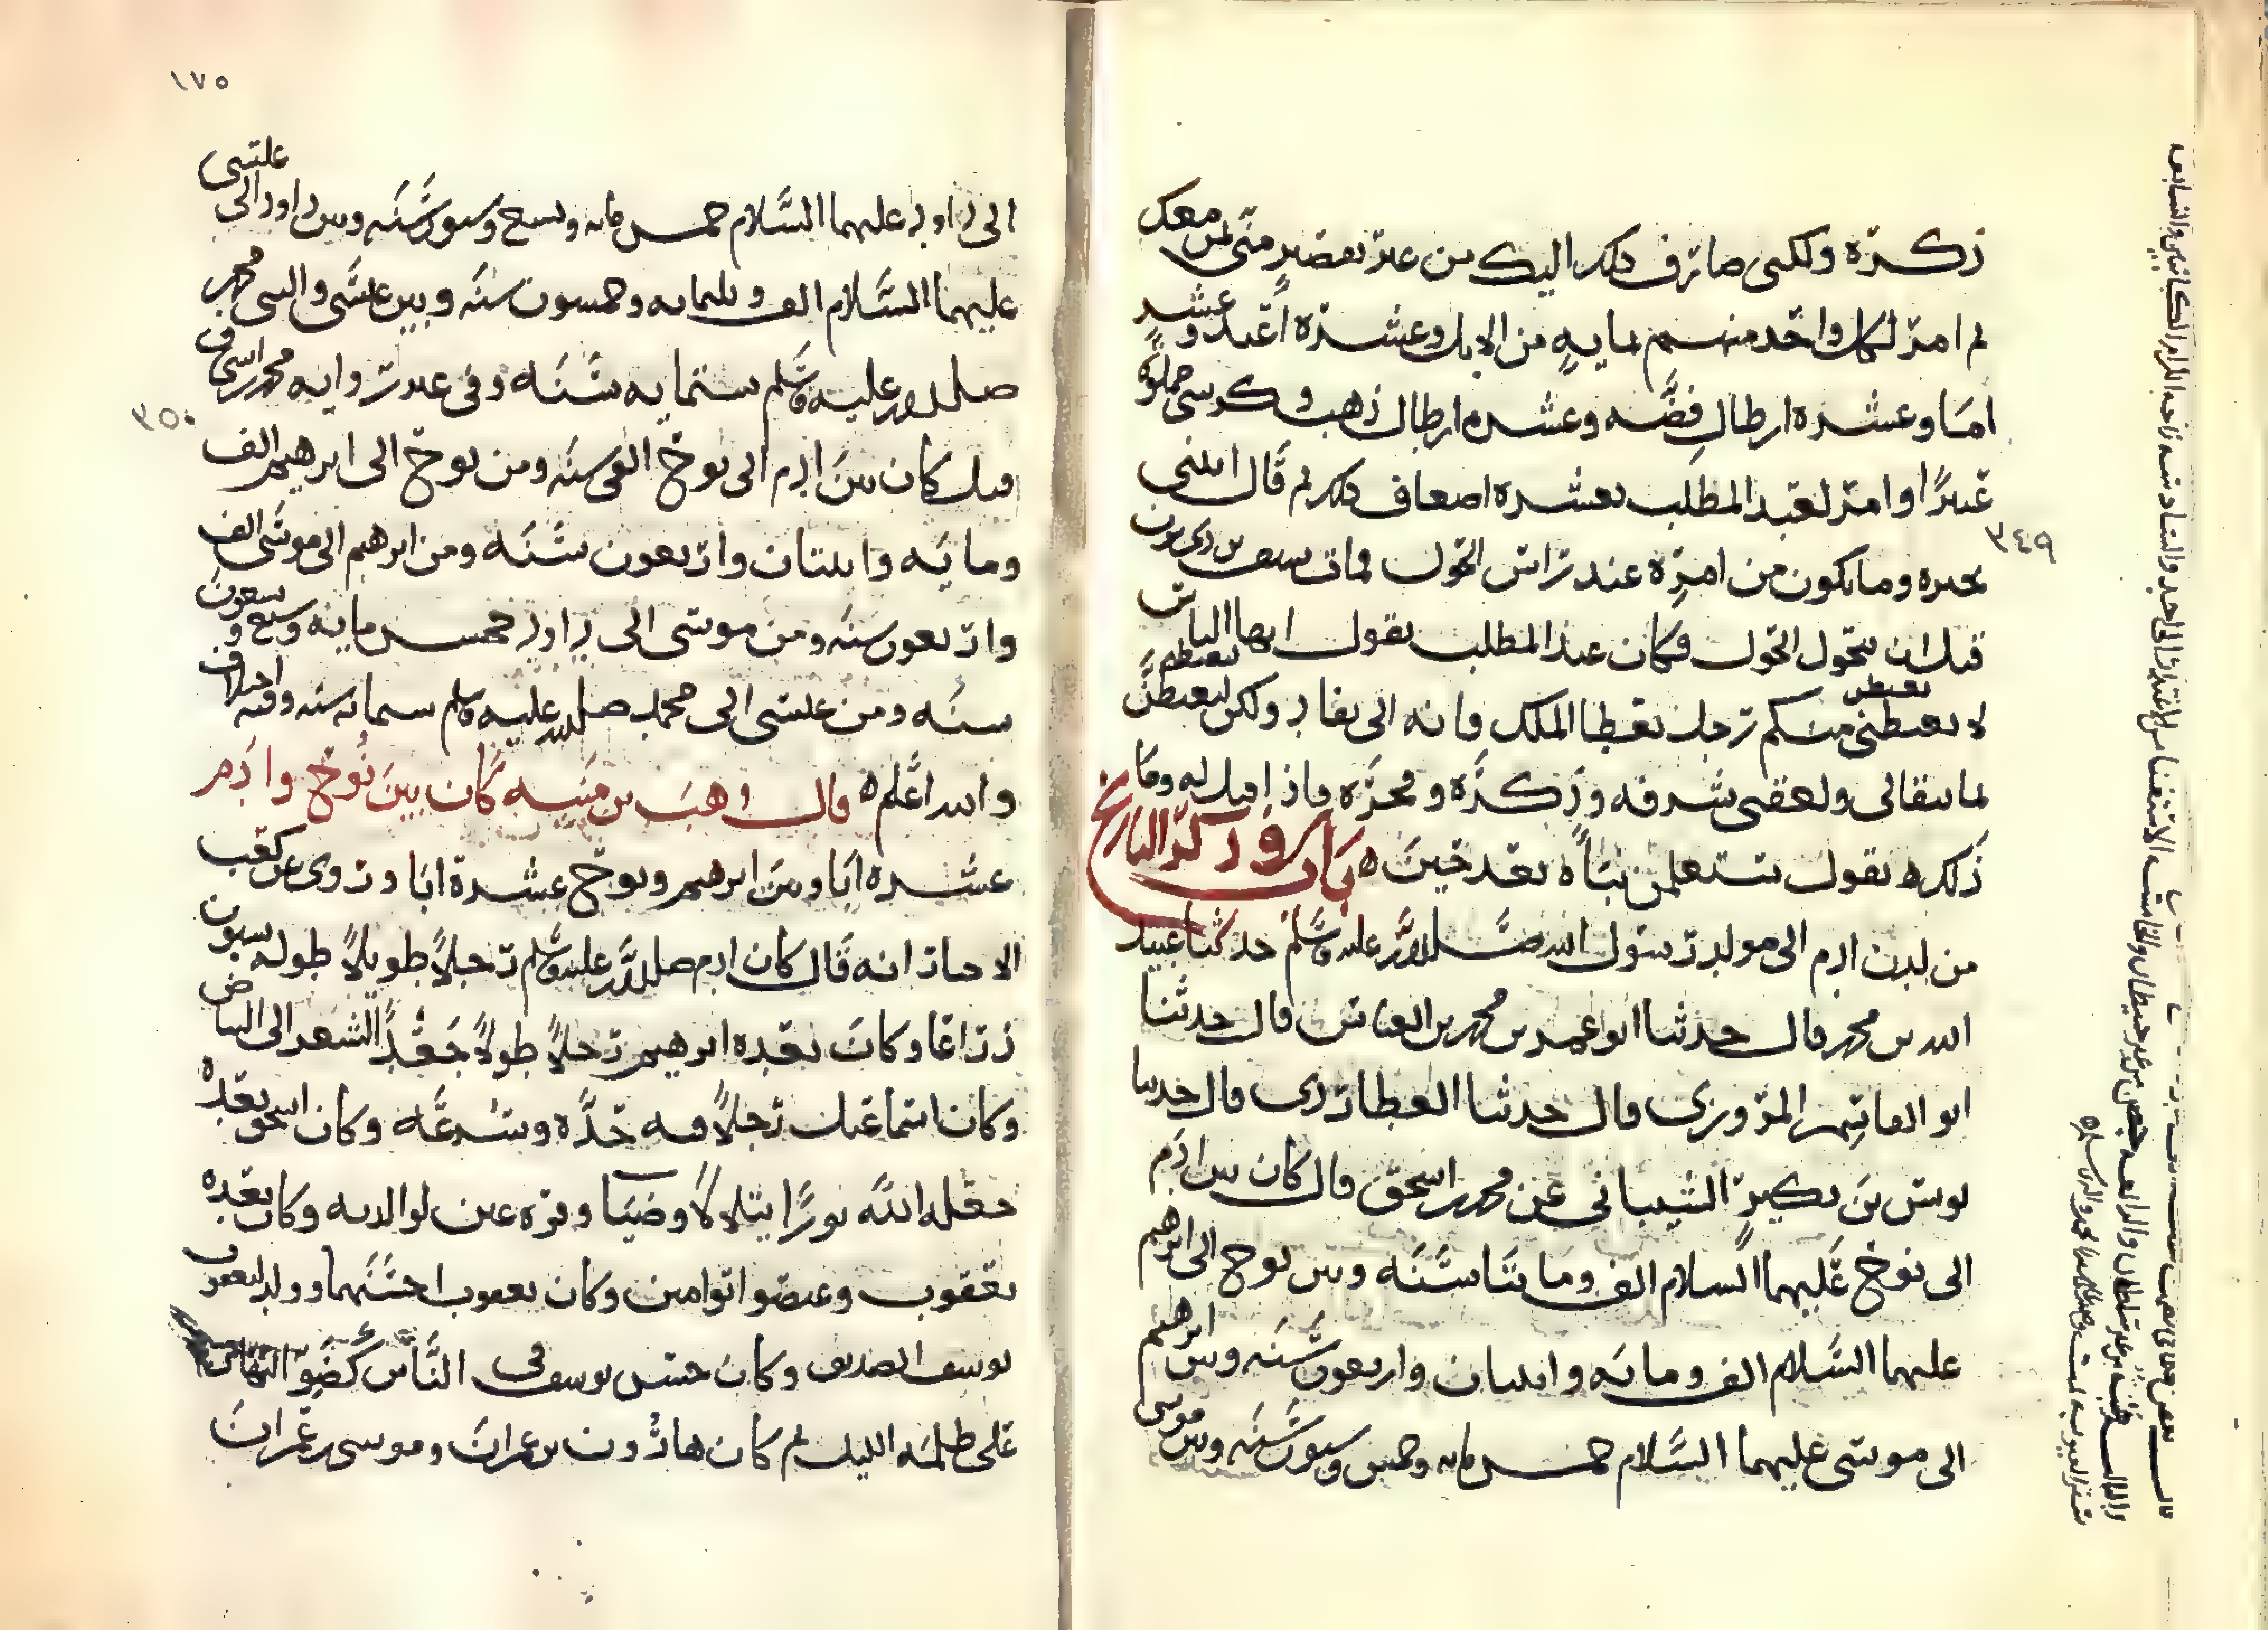 ذكره ولكني صارف ذلك اليك من غير تقصير مني لمن معك
ثم امر لكل واحد منهم بمايه من الابل وعشره اعبد وعشر
اما وعشره ارطال فضه وعشره ارطال ذهب وكرسي مملوة
عنبرًا وامر لعبد المطلب بعشره اضعاف ذلك ثم قال ائتني
بخبره وما يكون من امره عند راس الحول فمات سيف بن ذي يزن
قبل ان يحول الحول فكان عبد المطلب يقول ايها الناس
لا يغبطني منكم رجل بعطا الملك فانه الى نفاد ولكن ليغبطني
بما يبقا لي ولعقبي شرفه وذكره وفخره فاذا قيل له وما
ذلك يقول ستعلمن نباه بعد حين ه باب و ذكر التاريخ
من لدن ادم الى مولد رسول الله صلى الله عليه وسلم حدثنا عبيد
الله بن محمد قال حدثنا ابو عمر بن محمد بن العباس قال حدثنا
ابو القاسم المروزي قال حدثنا العطاردي قال حدثنا
يونس بن بكير الشيباني عن محمد اسحق قال كان بين ادم
الى نوح عليهما السلام الف ومايتا سنه وبين نوح الى ابرهيم
عليهما السلام الف ومايه واثنتان واربعون سنه وبين ابرهيم
الى موسى عليهما السلام خمس مايه وخمس وستون سنه وبين موسى
٣٤٩
١٧٥
الى داود عليهما السلام خمس مايه وتسع وستون سنه وبين داود الى عيسى
عليهما السلام الف وثلثمايه وخمسون سنه وبين عيسى والنبي محمد
صلى الله عليه وسلم ستمايه سنه وفي غير رواية محمد اسحاق
قيل كان بين ادم الى نوح الفي سنه ومن نوح الى ابرهيم الف
ومايه واثنتان واربعون سنه ومن ابرهيم الى موسى الف
واربعون سنه ومن موسى الى داود خمس مايه وتسع وسبعون
سنه ومن عيسى الى محمد صلى الله عليه وسلم ستمايه سنه وفيه اختلاف
والله اعلم ه قال وهب بن منبه كان بين نوح وادم
عشره ابا وبين ابرهيم ونوح عشرة ابا وروى عن كعب
الاحبار انه قال كان ادم صلى الله عليه وسلم رجلاً طويلاً طوله ستون
ذراعا وكان بعده ابرهيم رجلاً طولاً جعد الشعر الى البياض
وكان اسماعيل رجلاً فيه حده وسرعه وكان اسحق بعده
جعله الله نورًا يتلالا وضيا وقره عين لوالديه وكان بعده
يعقوب وعيصو اتوامين وكان يعقوب احسنهما وولد ليعقوب
يوسف الصديق وكان حسن يوسف في الناس كضو النهار
على ظلمه الليل ثم كان هارون بن عمران وموسى بن عمران
٣٥٠